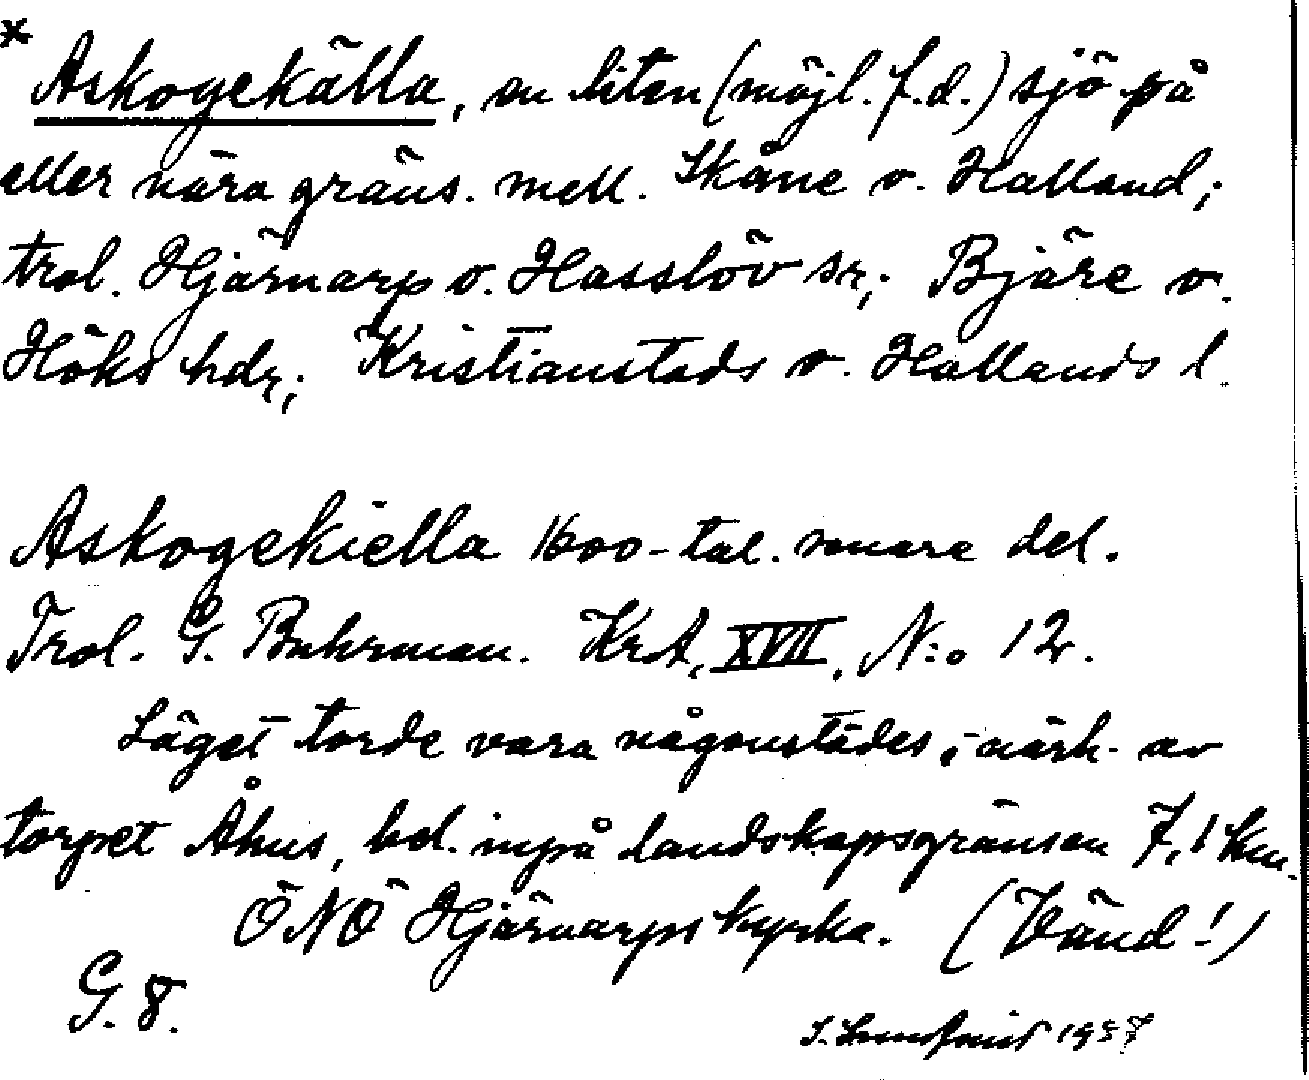 * Askogekälla, en liten (möjl. f.d.) sjö på
eller nära gräns. mell. Skåne o. Halland;
trol. Hjärnarp o. Hasslöv sr; Bjäre o.
Höks hdr; Kristianstads o. Hallands l.
Askogekiella 1600-tal. senare del.
Trol. G. Buhrman. KrA, XVII, N:o 12.
Läget torde vara någonstädes i närh. av
torpet Åhus, bel. inpå landskapsgränsen 7,1 km.
ÖNÖ Hjärnarps kyrka. (Vänd!)
G. 8.
1957